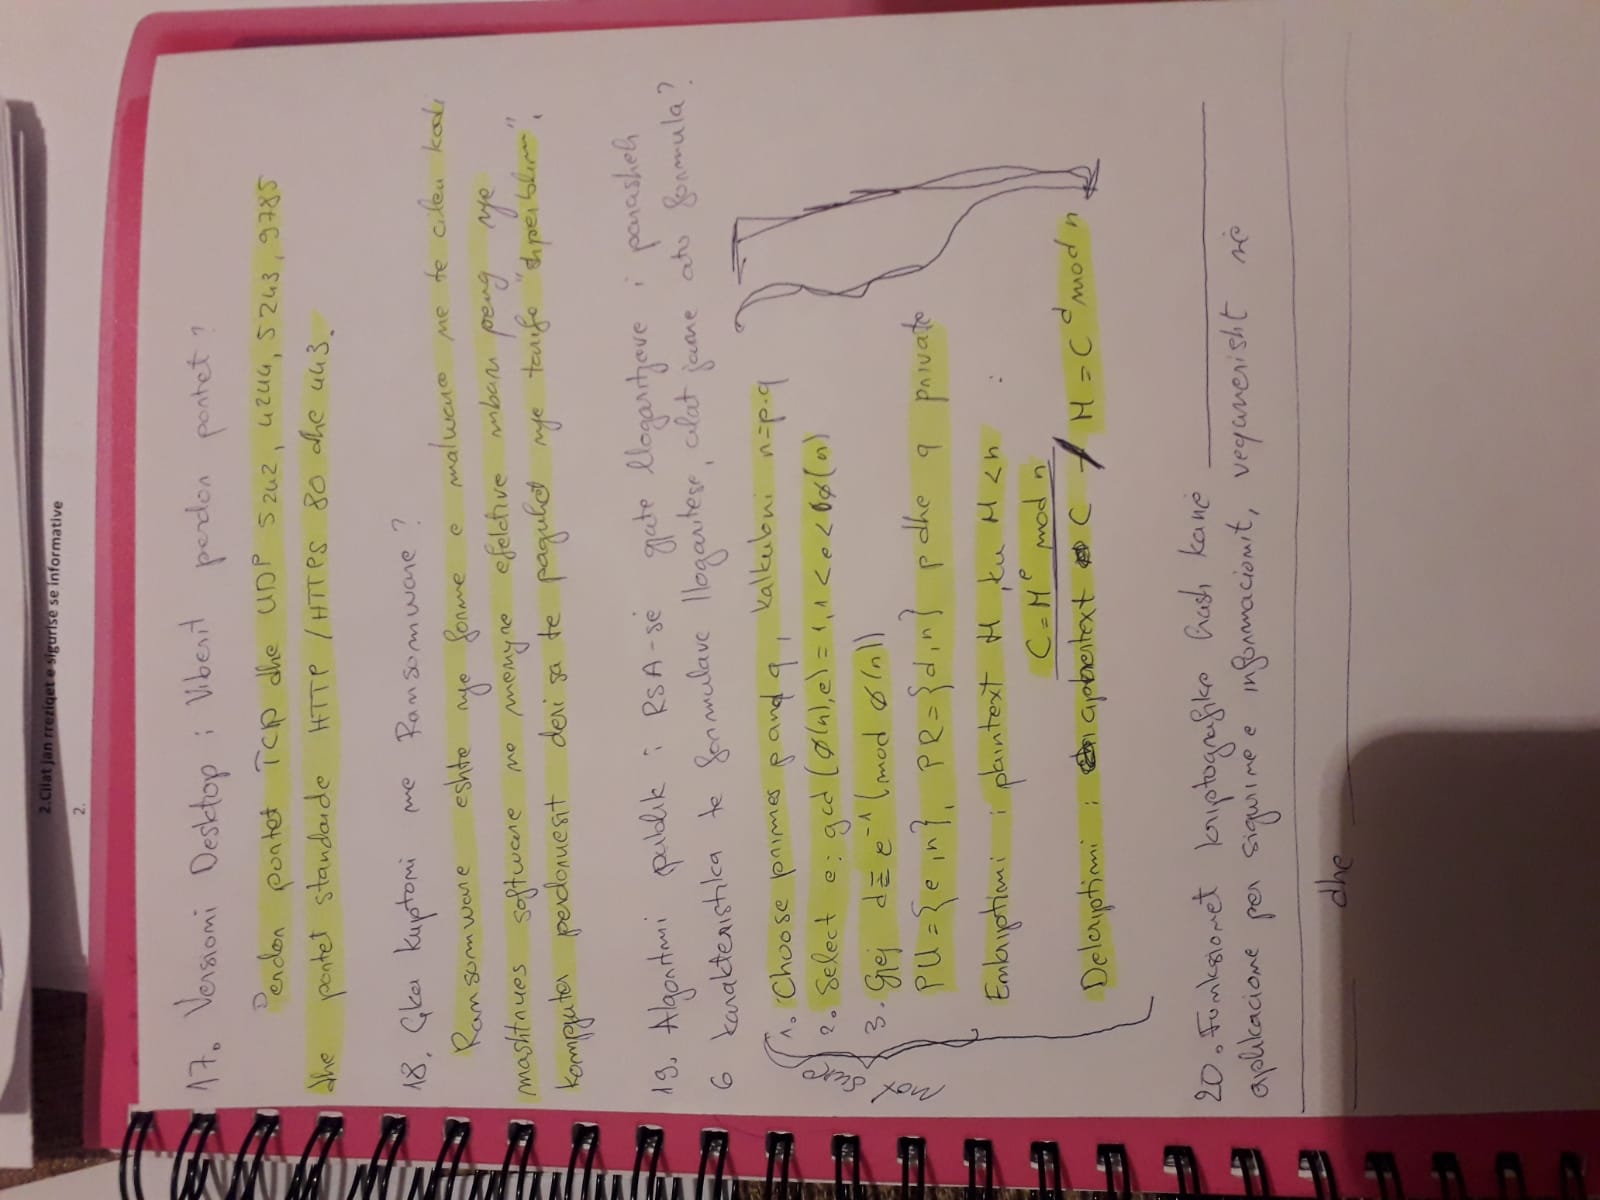 2.Cilat jan rreziqet e sigurise se informative
2.
17. Versioni Desktop i Viberit perdor portet?
Perdor portet TCP dhe UDP 5242, 4244, 5243, 9785
dhe portet standarde HTTP/HTTPS 80 dhe 443.
18. Çka kuptomi me Ransomware?
Ransomware eshte nje forme e malware ne te cilen kodi
mashtrues software ne menyre efektive mban peng nje
kompjuter perdoruesit deri sa te paguhet nje tarife "shperblim".
19. Algoritmi publik i RSA-së gjate llogaritjeve i parasheh
6 karakteristika te formulave llogaritese, cilat jane ato formula?
1. Choose primes p and q, kalkuloni n=p.q
2. Select e: gcd (Ø(n),e)=1, 1<e<Ø(n)
3. Gjej d≡e⁻¹(mod Ø(n))
PU={e,n}, PR={d,n} p dhe q private
Enkriptimi i plaintext M, ku M<n :
C=Mᵉ mod n
Dekriptimi i ciphertext C M=Cᵈ mod n
20. Funksionet kriptografike hash kanë
aplikacione per sigurine e informacionit, veçanerisht në
dhe